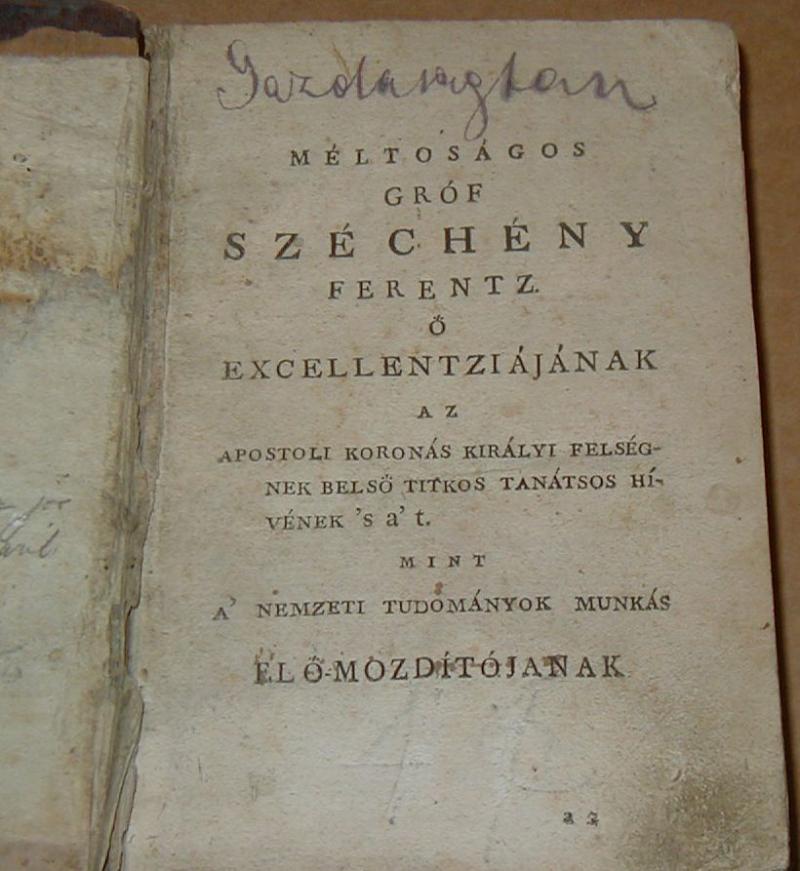 Gazdaságtan
MÉLTOSÁGOS
GRÓF
SZÉCHÉNY
FERENTZ.
Ő
EXCELLENTZIÁJÁNAK
AZ
APOSTOLI KORONÁS KIRÁLYI FELSÉG-
NEK BELSŐ TITKOS TANÁTSOS HÍ-
VÉNEK 's a' t.
MINT
A' NEMZETI TUDOMÁNYOK MUNKÁS
ELŐ-MOZDÍTÓJANAK
a 2